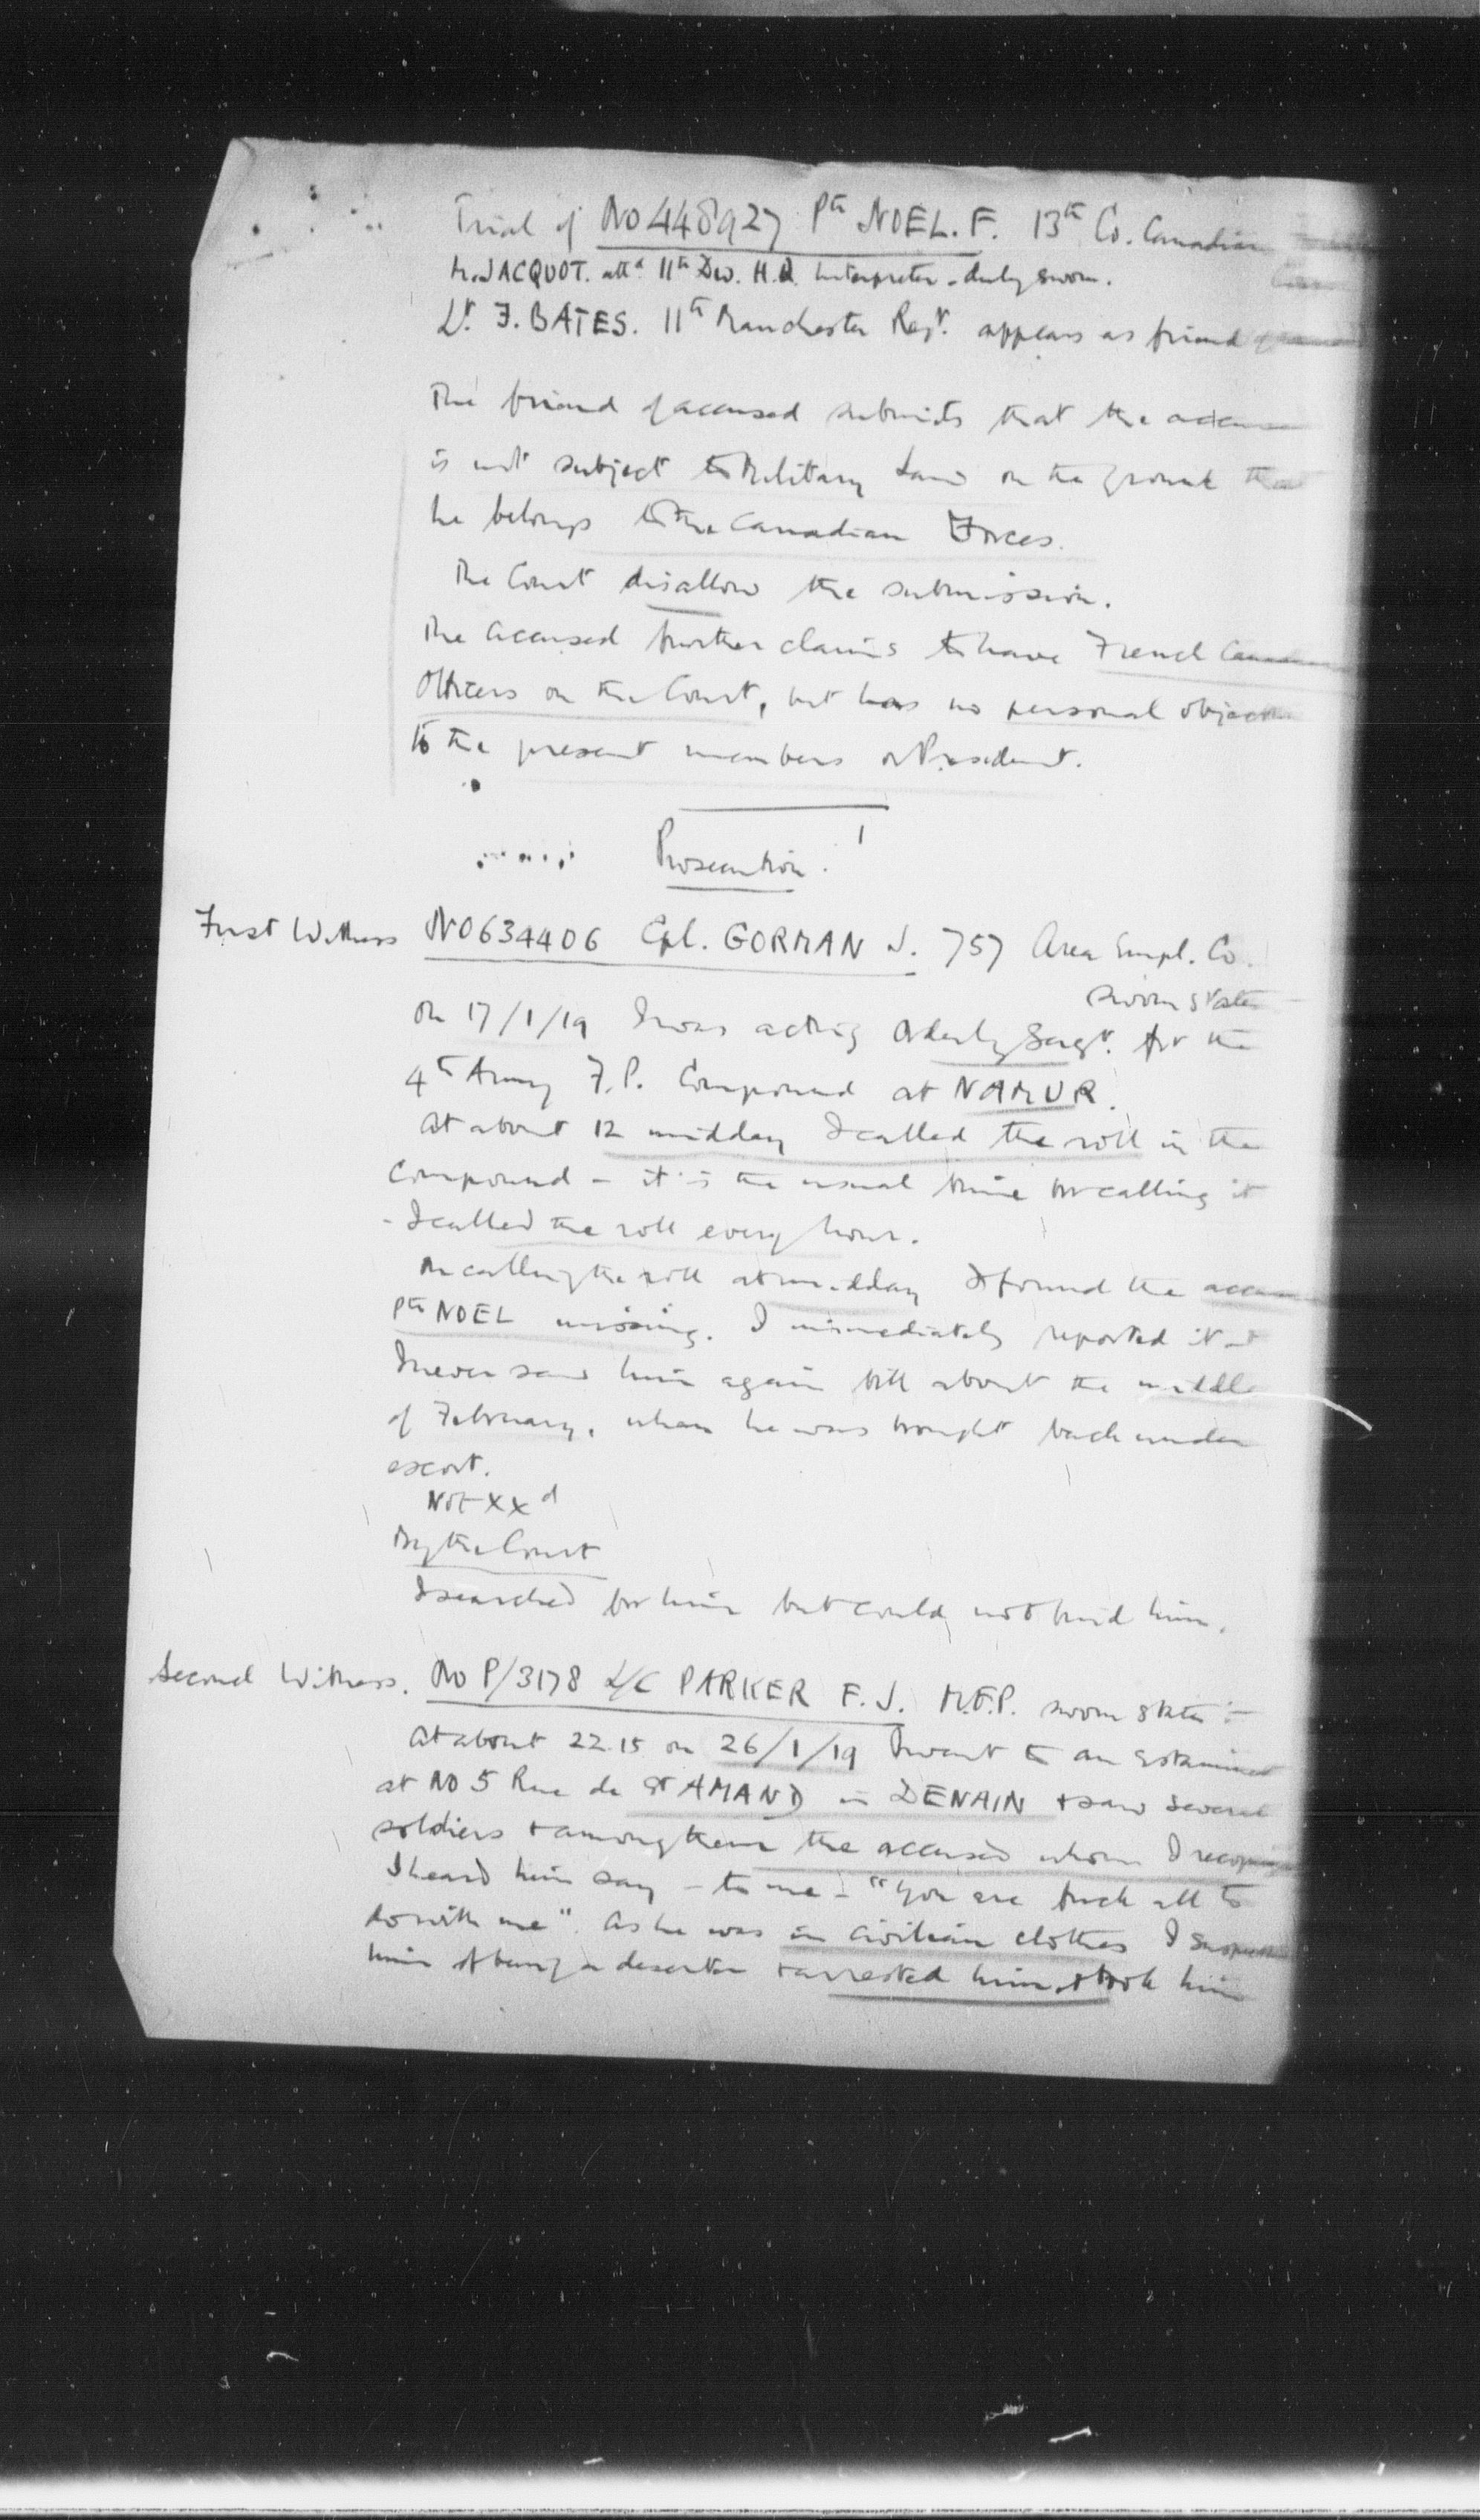 Trial of No 448927 Pte NOEL. F. 13th Co. Canadian
M. JACQUOT. attd 11th Div. H.Q. Interpreter - duly sworn.
Lt. F. BATES. 11th Manchester Regt. appears as friend of
The friend of accused submits that the
is not subject to Military Law on the ground that
he belongs to the Canadian Forces.
The Court disallow the submission.
The accused further claims to have French
Officers on the Court, but has no personal
to the present members or President.
Prosecution.
First Witness No 634406 Cpl. GORMAN J. 757 Area Empl. Co.
sworn states
On 17/1/19 I was acting Orderly Sergt. for the
4th Army F.P. Compound at NAMUR.
At about 12 midday I called the roll in the
compound - it is the usual time for calling it
- I called the roll every hour.
On calling the roll at midday I found the
Pte NOEL missing. I immediately reported it &
I never saw him again till about the middle
of February, when he was brought back under
escort.
Not XXd
By the Court
I searched for him but could not find him.
Second Witness. No P/3178 L/C PARKER F. J. M.F.P. sworn states :-
At about 22.15 on 26/1/19 I went to an Estaminet
at No 5 Rue de St AMAND in DENAIN & saw several
soldiers & among them the accused whom I
I heard him say - to me - "You are fuck all to
do with me". As he was in civilian clothes I
him of being a deserter & arrested him & took him